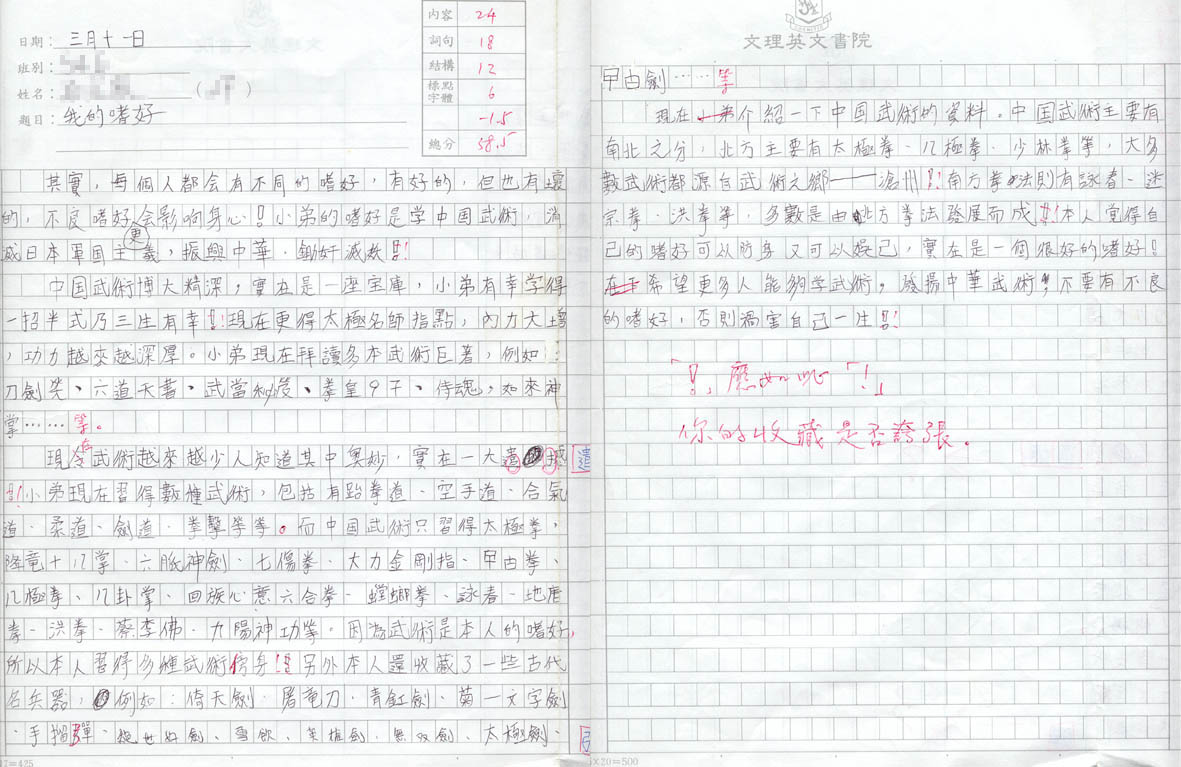 日期：三月十一日
班別：
姓名：
題目：我的嗜好
內容 24
詞句 18
結構 12
標點字體 6
-1.5
總分 58.5
其實，每個人都会有不同的嗜好，有好的，但也有壞
的，不良嗜好会影响身心！小弟的嗜好是学中国武術，消
滅日本軍国主義，振興中華，鋤奸滅敵！
中国武術博大精深，實在是一座宝庫，小弟有幸学得
一招半式乃三生有幸！現在更得太極名師指點，內力大增
，功力越來越深厚。小弟現在拜讀多本武術巨著，例如：
刀劍笑、六道天書、武當秘笈、拳皇97、侍魂，如來神
掌……等。
現今武術越來越少人知道其中奧妙，實在一大遺憾
！小弟現在習得數種武術，包括有跆拳道、空手道、合氣
道、柔道、劍道、拳擊等等。而中国武術只習得太極拳，
降竜十八掌、六脈神劍、七傷拳、大力金剛指、曱甴拳、
八極拳、八卦掌、回族心意六合拳、螳螂拳、詠春、地度
拳、洪拳、蔡李佛、九陽神功等。因為武術是本人的嗜好，
所以本人習得多種武術傍身！另外本人還收藏了一些古代
名兵器，例如：倚天劍、屠竜刀、青釭劍、菊一文字劍
、手榴彈、雪飲、無双劍、太極劍、
遺
17=425
文理英文書院
曱甴劍……等
現在小弟介紹一下中国武術的資料。中国武術主要有
南北之分，北方主要有太極拳、八極拳、少林拳等，大多
數武術都源自武術之鄉——滄州！南方拳法則有詠春、迷
宗拳、洪拳等，多數是由北方拳法發展而成！本人覚得自
己的嗜好可以防身又可以娛己，實在是一個很好的嗜好！
希望更多人能夠学武術，發揚中華武術，不要有不良
的嗜好，否則禍害自己一生！
「！」應如此「！」
你的收藏是否誇張。
5X20=500